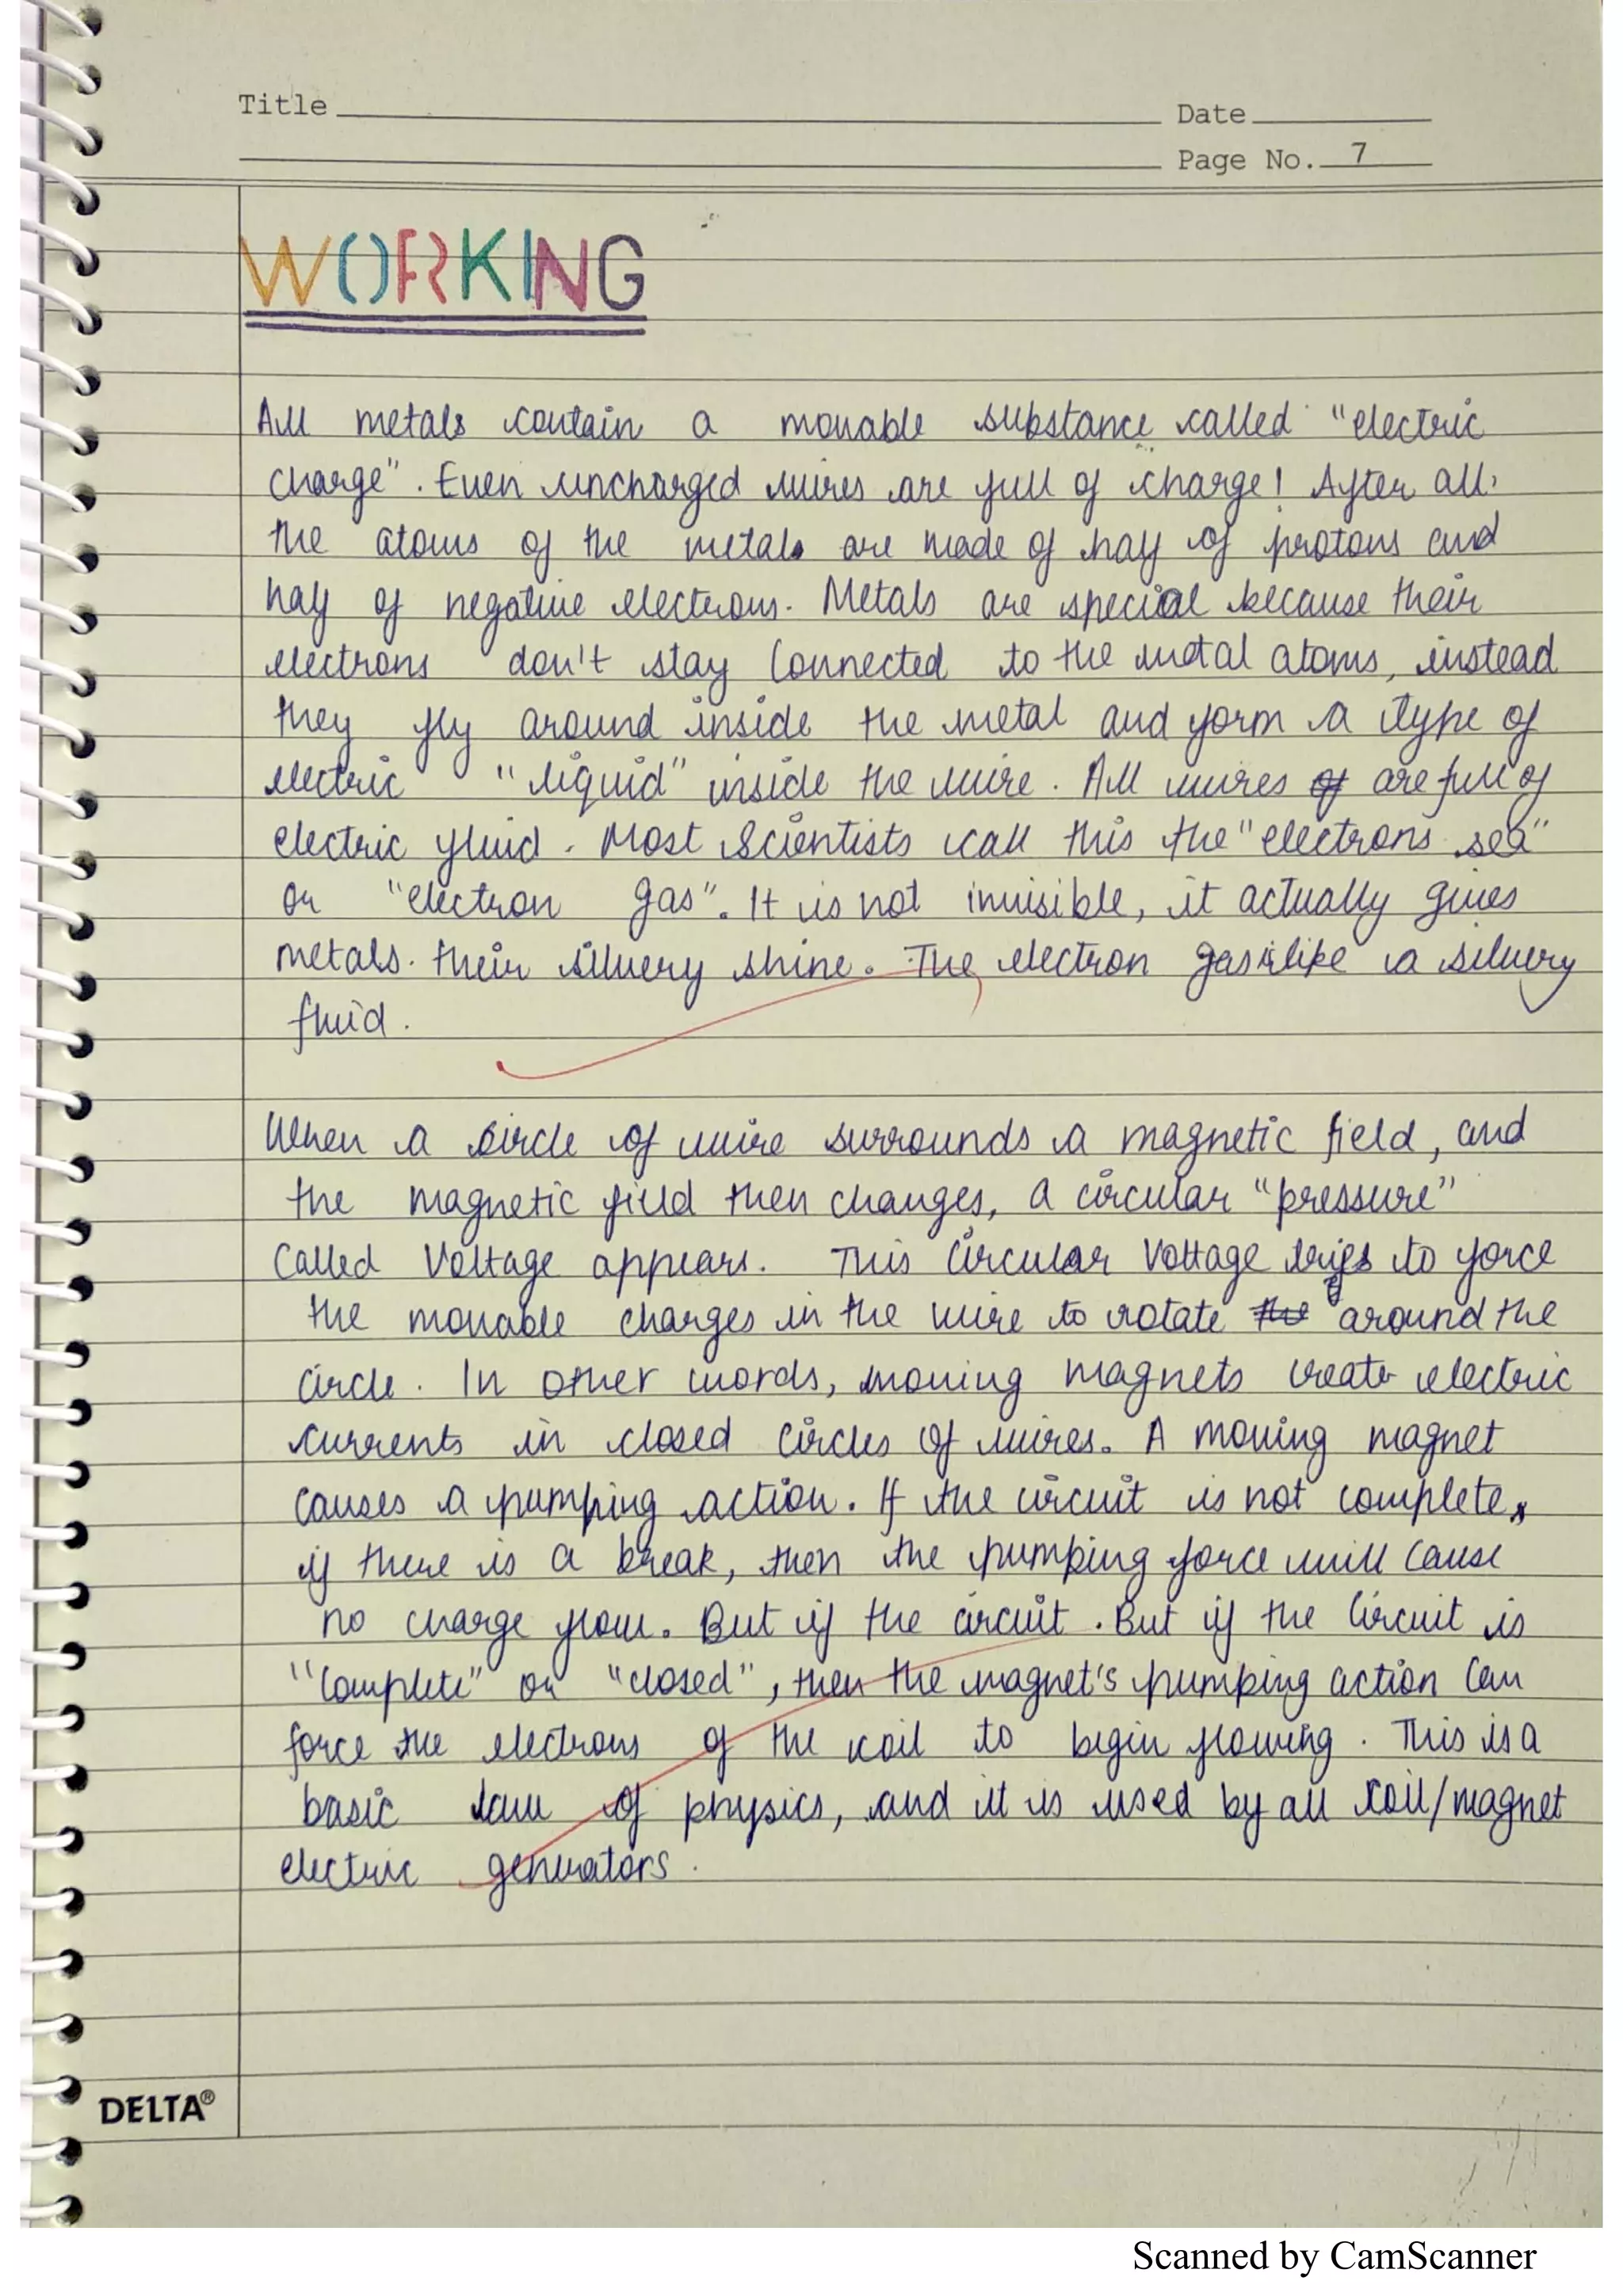 Title
Date
Page No. 7
WORKING
All metals contain a movable substance called "electric
charge". Even uncharged wires are full of charge! After all,
the atoms of the metals are made of half of protons and
half of negative electrons. Metals are special because their
electrons don't stay connected to the metal atoms, instead
they fly around inside the metal and form a type of
electric "liquid" inside the wire. All wires of are full of
electric fluid. Most Scientists call this the "electrons sea"
or "electron gas". It is not invisible, it actually gives
metals. their silvery shine. The electron gas is like a silvery
fluid.
When a circle of wire surrounds a magnetic field, and
the magnetic field then changes, a circular "pressure"
Called Voltage appears. This Circular Voltage tries to force
the movable charges in the wire to rotate the around the
circle. In other words, moving magnets create electric
currents in closed circles of wires. A moving magnet
causes a pumping action. If the circuit is not complete,
if there is a break, then the pumping force will cause
no charge flow. But if the circuit. But if the Circuit is
"Complete" or "closed", then the magnet's pumping action can
force the electrons of the coil to begin flowing. This is a
basic law of physics, and it is used by all coil/magnet
electric generators.
DELTA®
Scanned by CamScanner